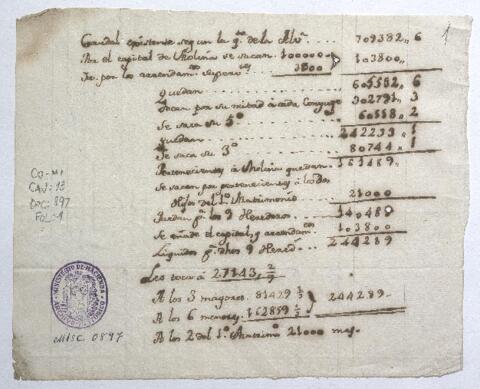 1
Caudal existente segun la q.ª de la Alv.ª . . . . . . 709382,, 6
Por el capital de Molina se sacan . 100000 } 103800 ,,
Ya. por los arrendam.tos 3800
quedan . . . . . . 605582 ,, 6
tocan por su mitad á cada Conyuge 302791 ,, 3
Se saca su 5º . . . . . . 60558 ,, 2
quedan . . . . . . 242233 ,, 1
Se saca su 3º . . . . . . 80744 ,, 1
Pertenecientes á Molina quedan . 161489 ,,
Se sacan por pertenecientes á los dos
Hijos del 1º Matrimonio . . . 21000
Quedan p.ª los 9 Herederos . . . 140489
Se añade el capital, y arrendam.tos 103800
Liquidos p.ª dhos 9 Hered.s . . . 244289
Les toca á 27143 2/9
A los 3 mayores . 81429 1/3 } 244289 ,,
A los 6 menores . 162859 1/3
A los 2 del 1º Matrimo.º 21000 mas.
CO-MI
CAJ: 13
DOC: 897
FOL: 1
MINISTERIO DE HACIENDA
MISC. 0897